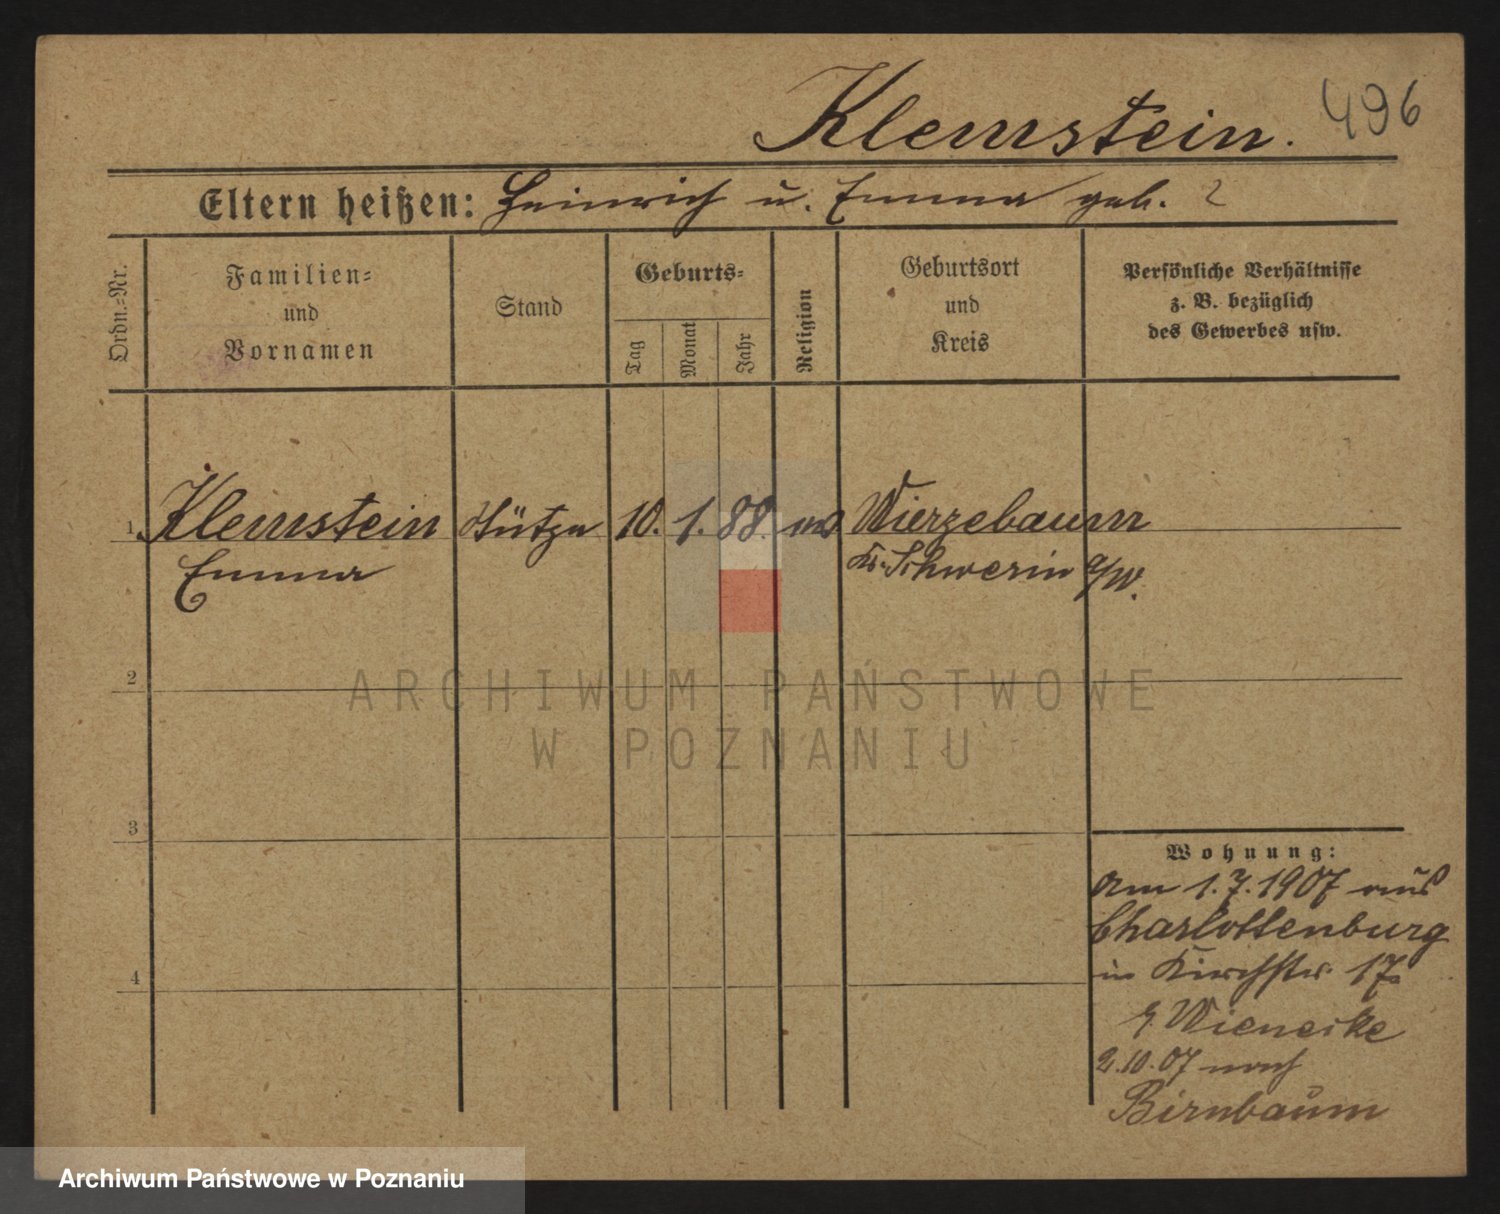 Klemstein.
496
Eltern heißen: Heinrich u. Emma geb. ?
Ordn.-Nr.
Familien-
und
Vornamen
Stand
Geburts-
Tag
Monat
Jahr
Religion
Geburtsort
und
Kreis
Persönliche Verhältnisse
z. B. bezüglich
des Gewerbes usw.
1. Klemstein Stütze 10. 1. 88. Wierzebaum
Emma Kr. Schwerin a/W.
2
ARCHIWUM PAŃSTWOWE
W POZNANIU
3
Wohnung:
Am 1.7.1907 aus
Charlottenburg
in Kirchstr. 17
Wienecke
4
2.10.07 nach
Birnbaum
Archiwum Państwowe w Poznaniu